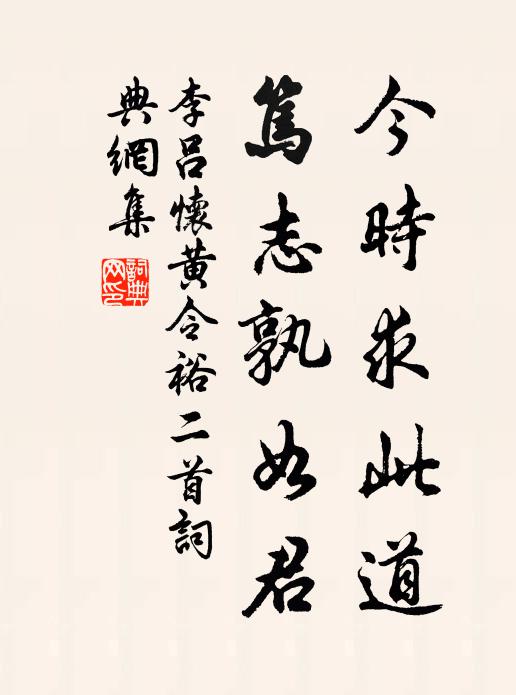 今時求此道
篤志孰如君
李呂懷黃令裕二首詞
典網集
詞典
网印